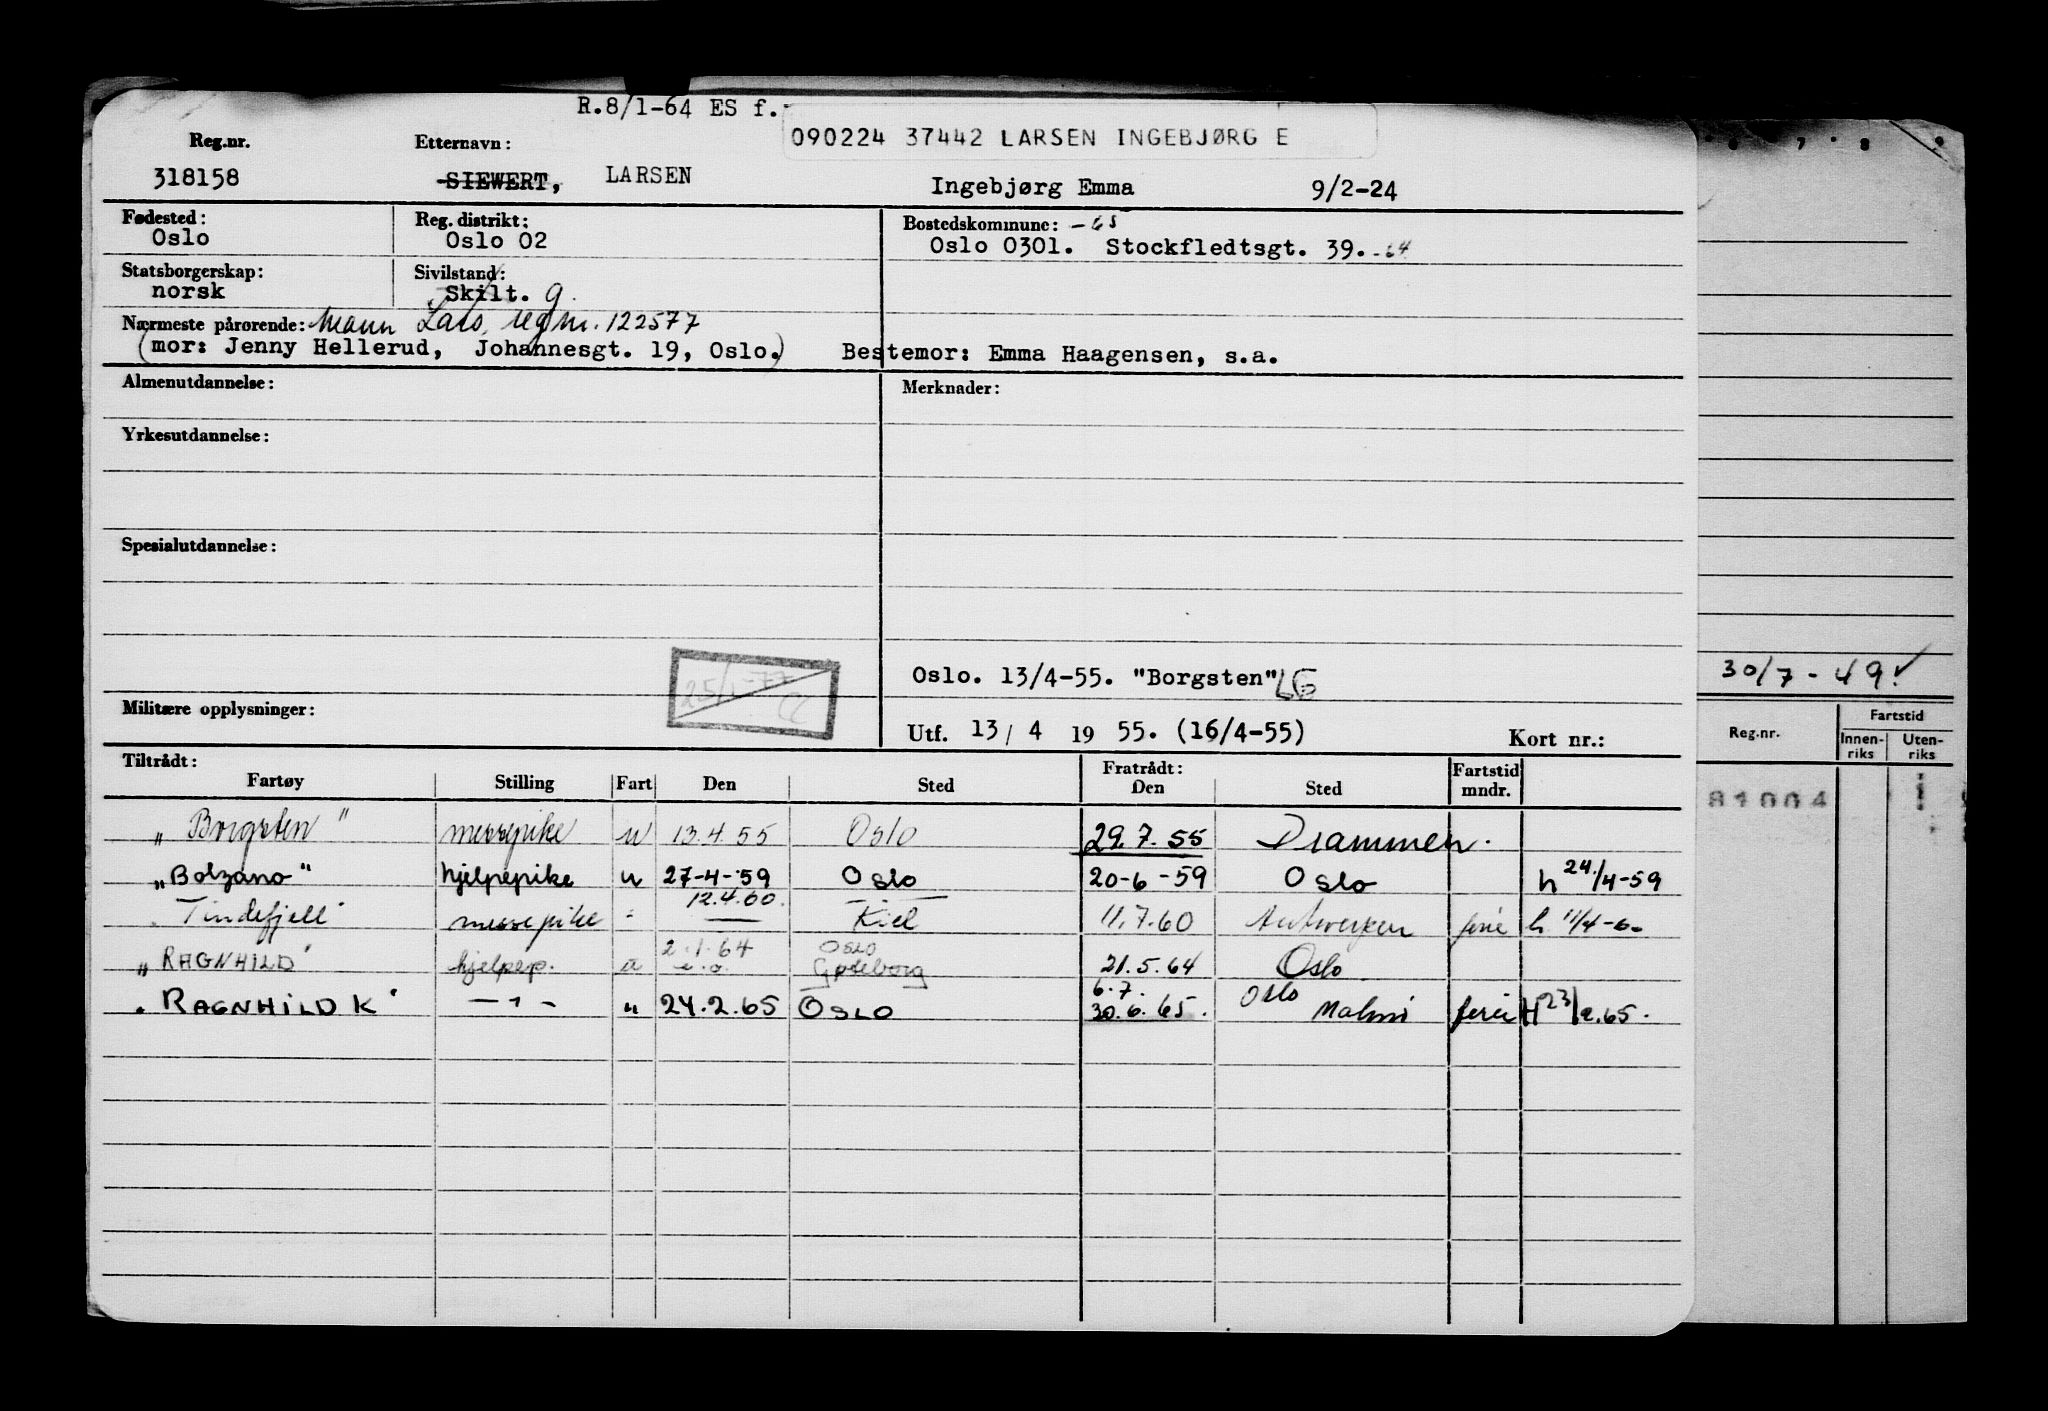 R.8/1-64 ES f.
090224 37442 LARSEN INGEBJØRG E
Reg.nr. Etternavn:
318158 SIEWERT, LARSEN Ingebjørg Emma 9/2-24
Fødested: Reg. distrikt: Bostedskommune: -65
Oslo Oslo 02 Oslo 0301. Stockfledtsgt. 39. -64
Statsborgerskap: Sivilstand:
norsk Skilt. g.
Nærmeste pårørende: Mann Lars, regnr. 122577
(mor: Jenny Hellerud, Johannesgt. 19, Oslo.) Bestemor: Emma Haagensen, s.a.
Almenutdannelse: Merknader:
Yrkesutdannelse:
Spesialutdannelse:
Oslo. 13/4-55. "Borgsten" LG
30/7-49
Militære opplysninger: Utf. 13/4 1955. (16/4-55) Kort nr.:
Reg.nr. Fartstid
Innen-riks Uten-riks
81004
Tiltrådt: Fratrådt: Fartstid
Fartøy Stilling Fart Den Sted Den Sted mndr.
"Borgsten" messepike u 13.4.55 Oslo 29.7.55 Drammen.
"Bolzano" hjelpepike u 27-4-59 Oslo 20-6-59 Oslo h 24/4-59
12.4.60.
"Tindefjell" messepike " — Kiel 11.7.60 Antwerpen ferie h 11/4-60
2.1.64 Oslo
"RAGNHILD" hjelpep. u Gøteborg 21.5.64 Oslo
6.7. Oslo
"RAGNHILD K" — " — " 24.2.65 OSLO 30.6.65. Malmö ferie H 23/2.65.